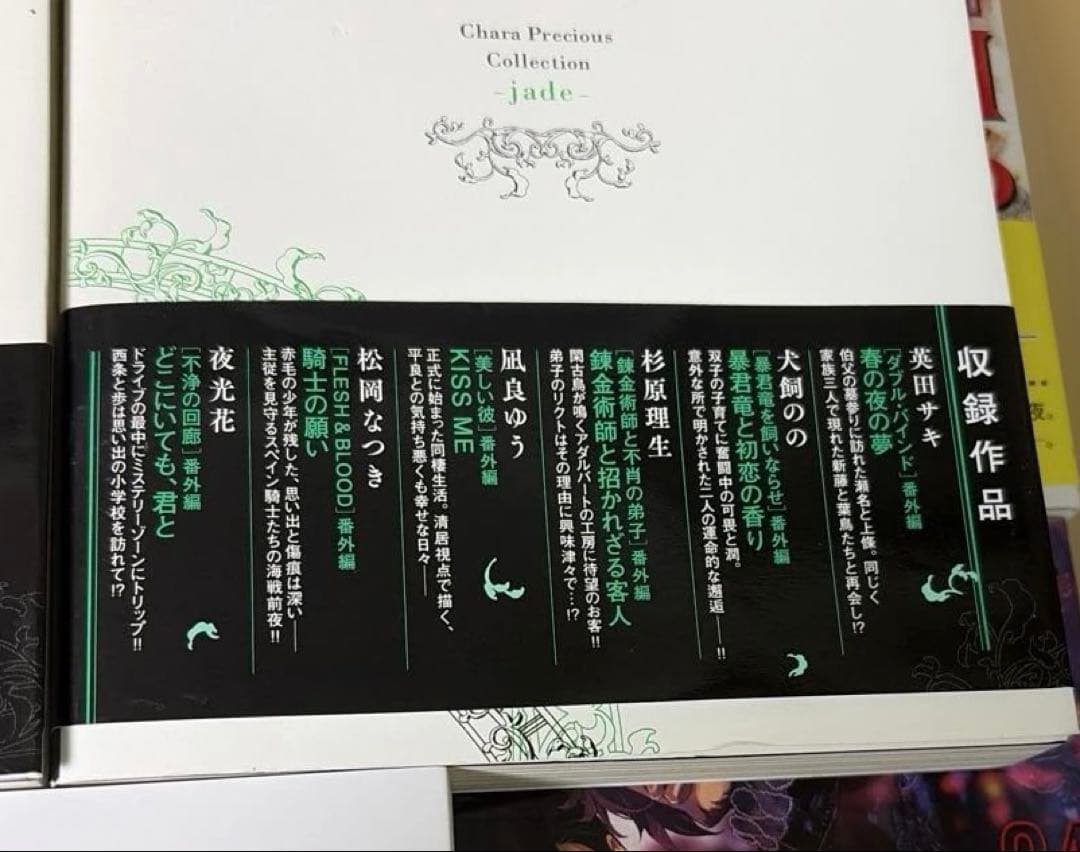 Chara Precious
Collection
-jade-
収録作品
英田サキ
[ダブル・バインド]番外編
春の夜の夢
伯父の墓参りに訪れた瀬名と上條。同じく
家族三人で現れた新藤と葉鳥たちと再会し!?
犬飼のの
[暴君竜を飼いならせ]番外編
暴君竜と初恋の香り
双子の子育てに奮闘中の可畏と潤。
意外な所で明かされた二人の運命的な邂逅――!!
杉原理生
[錬金術師と不肖の弟子]番外編
錬金術師と招かれざる客人
閑古鳥が鳴くアダルバートの工房に待望のお客!!
弟子のリクトはその理由に興味津々で…!?
凪良ゆう
[美しい彼]番外編
KISS ME
正式に始まった同棲生活。清居視点で描く、
平良との気持ち悪くも幸せな日々――
松岡なつき
[FLESH&BLOOD]番外編
騎士の願い
赤毛の少年が残した、思い出と傷痕は深い――
主従を見守るスペイン騎士たちの海戦前夜!!
夜光花
[不浄の回廊]番外編
どこにいても、君と
ドライブの最中にミステリーゾーンにトリップ!!
西条と歩は思い出の小学校を訪れて!?